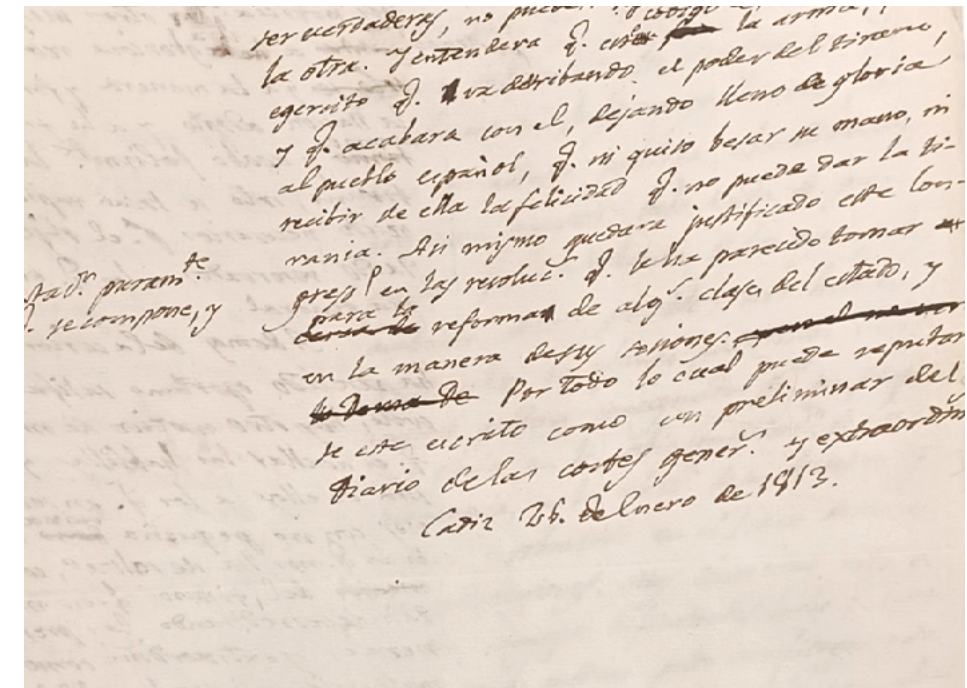 ser verdaderas, no pueden
la otra. Y entendera q. la arma
egercito q. va derribando el poder del tirano,
y q. acabara con el, dejando lleno de gloria
al pueblo español, q. ni quiso besar su mano, ni
recibir de ella la felicidad q. no puede dar la ti-
rania. Asi mismo quedara justificado este Con-
gres.l en las resoluc.s q. le ha parecido tomar
para la reforma de alg.s clases del estado, y
en la manera de sus sesiones.
Por todo lo cual puede reputar
se este escrito como un preliminar del
Diario de las cortes gener.s y extraordin
Cadiz 26. de Enero de 1813.
puram.te
q. se compone, y